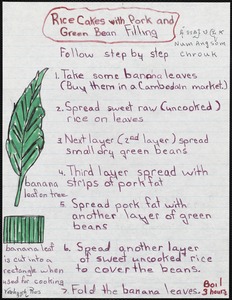 Rice Cakes with Pork and
Green Bean Filling
Num Ansom
Chrouk
Follow step by step
1. Take some banana leaves
(Buy them in a Cambodian market.)
2. Spread sweet raw (uncooked)
rice on leaves
3 Next layer (2nd layer) spread
small dry green beans
4. Third layer spread with
strips of pork fat
banana
leaf on tree
5. Spread pork fat with
another layer of green
beans
banana leaf
is cut into a
rectangle when
used for cooking
6. Spead another layer
of sweet uncooked rice
to cover the beans.
7. Fold the banana leaves.
Boil
3 hours